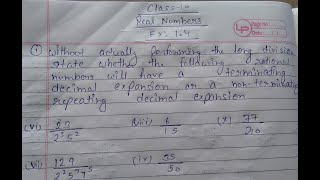 Class-10
Real Numbers
Ex: 1.4
① Without actually performing the long division
state whether the following rational
numbers will have a terminating
decimal expansion or a non-terminating
repeating decimal expansion
(vi) 23 / 2³5² (viii) 6 / 15 (x) 77 / 210
(vii) 129 / 2²5⁷7⁵ (ix) 35 / 50